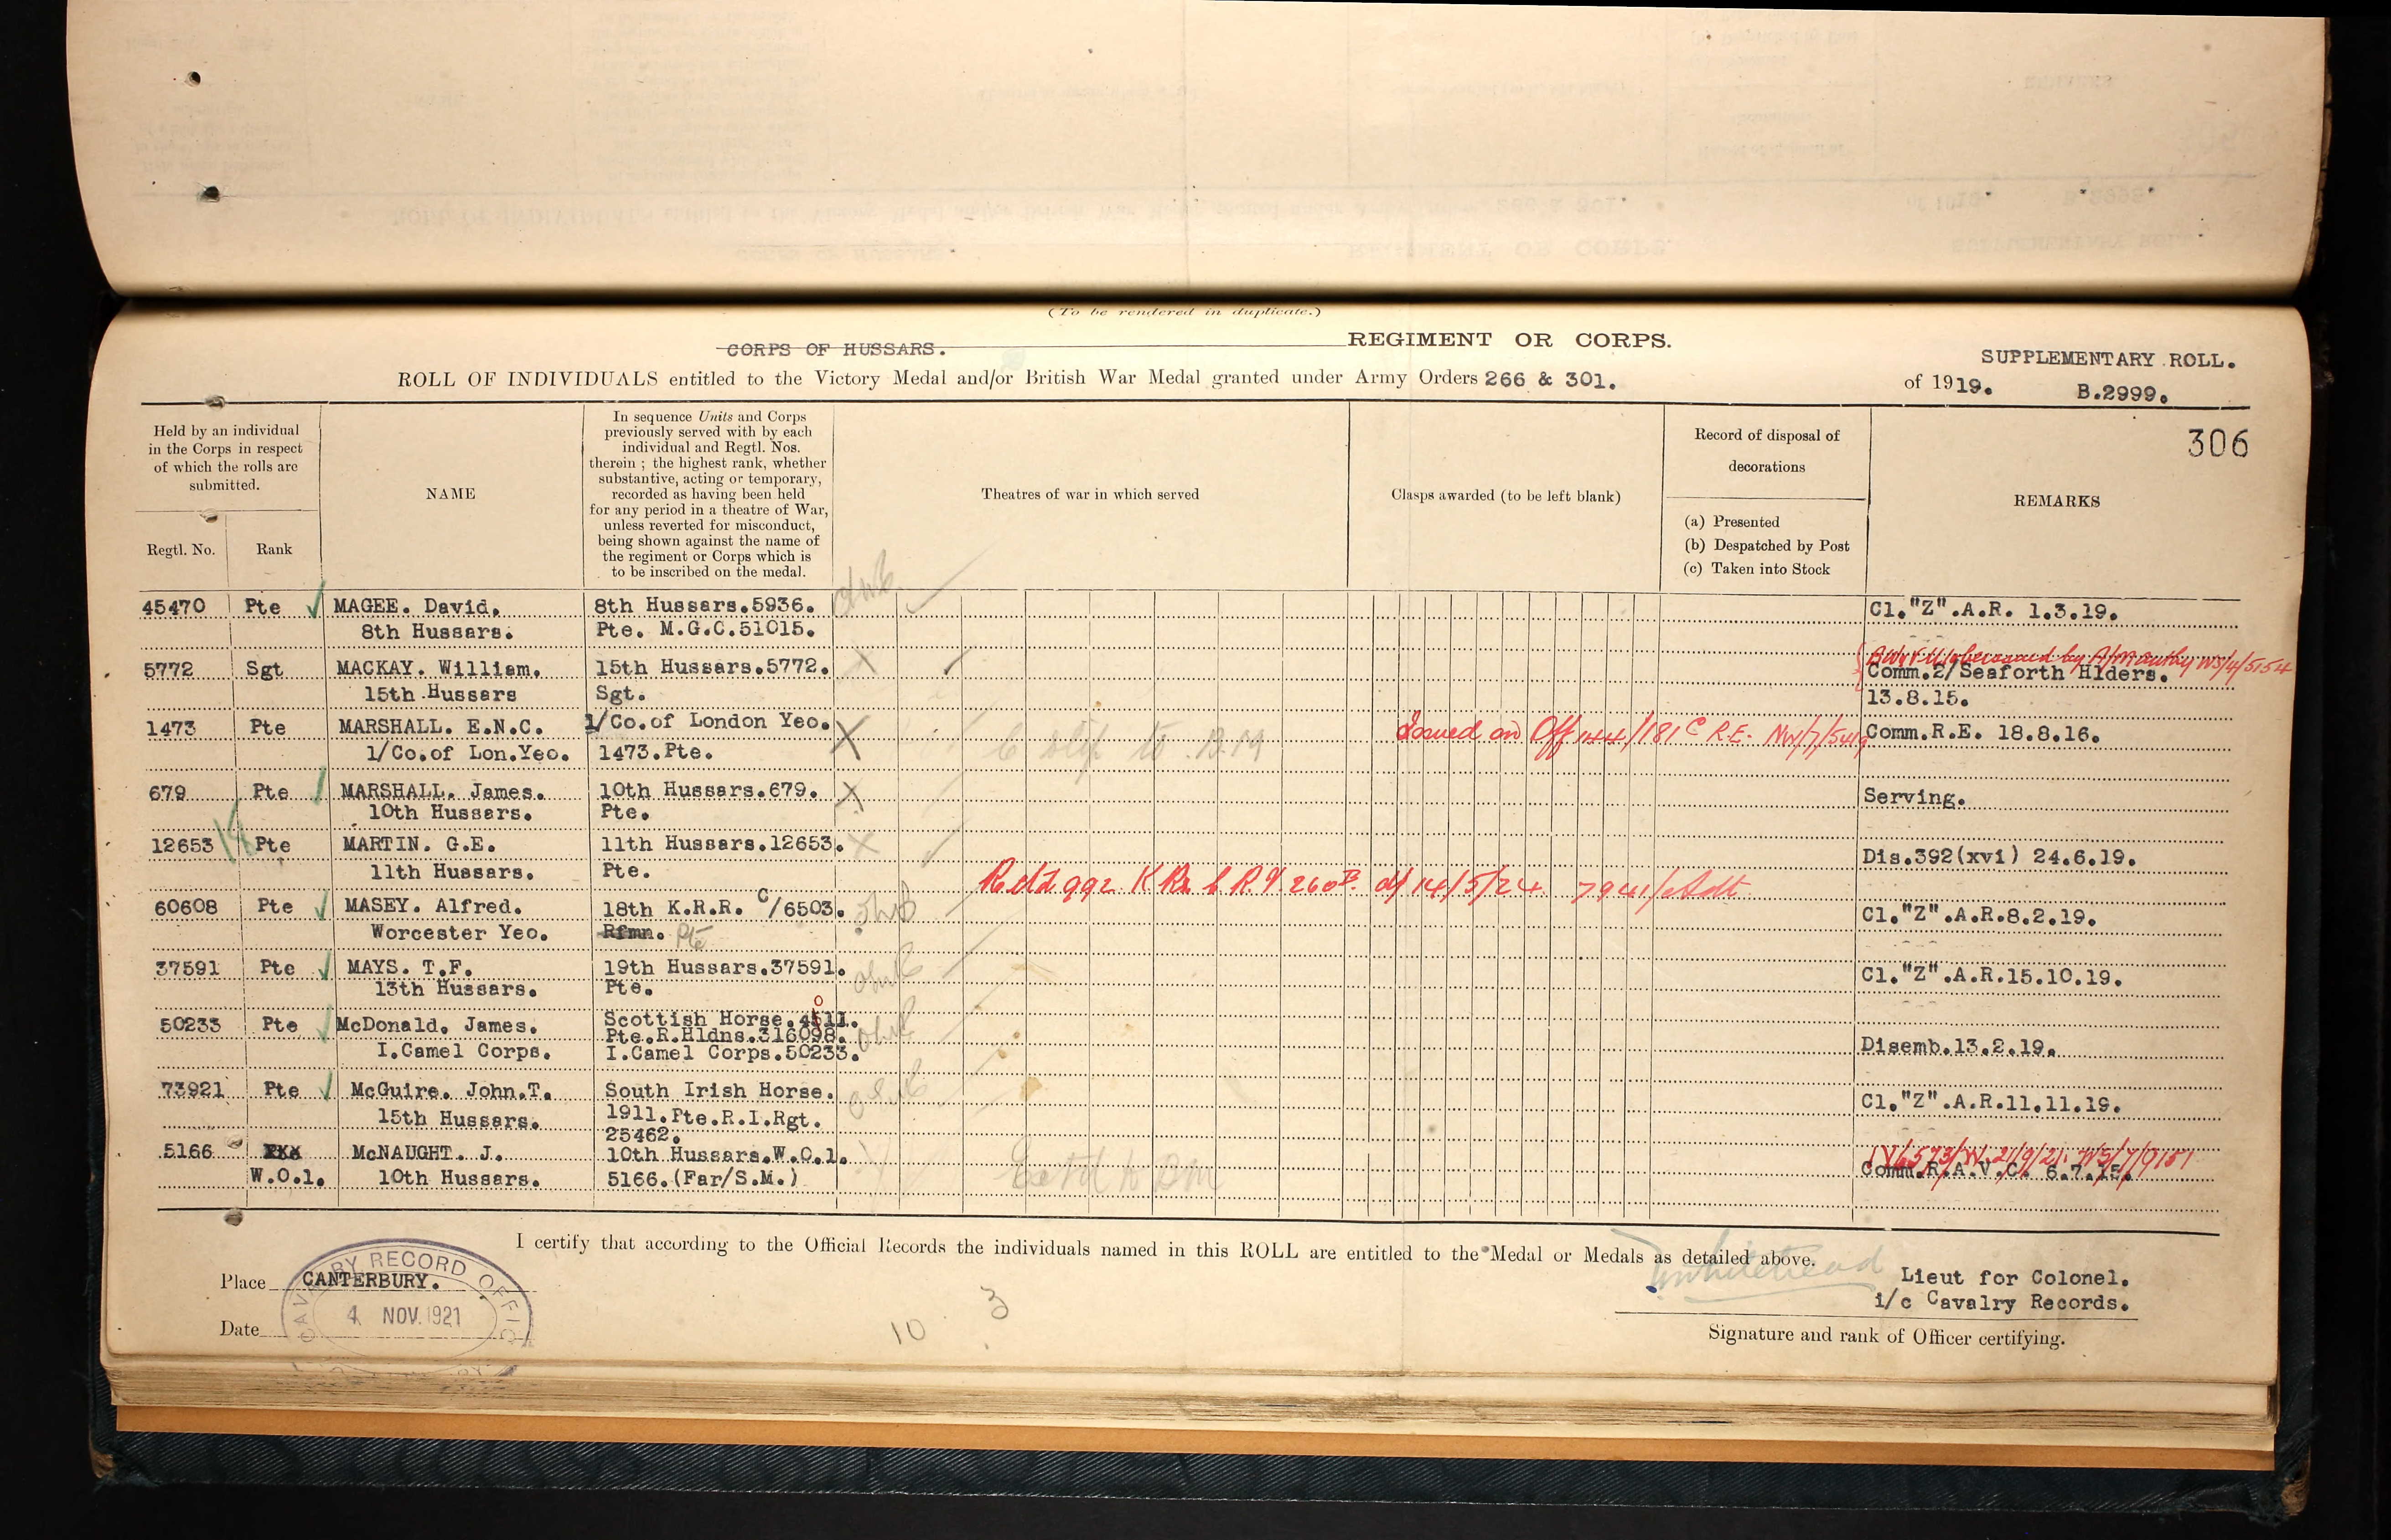 (To be rendered in duplicate.)
CORPS OF HUSSARS. REGIMENT OR CORPS.
SUPPLEMENTARY ROLL.
ROLL OF INDIVIDUALS entitled to the Victory Medal and/or British War Medal granted under Army Orders 266 & 301. of 1919. B.2999.
306
Held by an individual
in the Corps in respect
of which the rolls are
submitted.
Regtl. No. Rank
NAME
In sequence Units and Corps
previously served with by each
individual and Regtl. Nos.
therein ; the highest rank, whether
substantive, acting or temporary,
recorded as having been held
for any period in a theatre of War,
unless reverted for misconduct,
being shown against the name of
the regiment or Corps which is
to be inscribed on the medal.
Theatres of war in which served
Clasps awarded (to be left blank)
Record of disposal of
decorations
(a) Presented
(b) Despatched by Post
(c) Taken into Stock
REMARKS
45470 Pte MAGEE. David. 8th Hussars.5936. Cl."Z".A.R. 1.3.19.
8th Hussars. Pte. M.G.C.51015.
5772 Sgt MACKAY. William. 15th Hussars.5772. Comm.2/Seaforth Hlders.
15th Hussars Sgt. 13.8.15.
1473 Pte MARSHALL. E.N.C. 1/Co.of London Yeo. Issued on Off 144/181 C R.E. NW/7/5419 Comm.R.E. 18.8.16.
1/Co.of Lon.Yeo. 1473.Pte.
679 Pte MARSHALL. James. 10th Hussars.679. Serving.
10th Hussars. Pte.
12653 Pte MARTIN. G.E. 11th Hussars.12653. Dis.392(xvi) 24.6.19.
11th Hussars. Pte.
Retd 992 K Rs 14/5/24 7941/Adt
60608 Pte MASEY. Alfred. 18th K.R.R. C/6503. Cl."Z".A.R.8.2.19.
Worcester Yeo. Rfmn. Pte
37591 Pte MAYS. T.F. 19th Hussars.37591. Cl."Z".A.R.15.10.19.
13th Hussars. Pte.
50233 Pte McDonald. James. Scottish Horse.4511.
0
Pte.R.Hldns.316098.
I.Camel Corps. I.Camel Corps.50233. Disemb.13.2.19.
73921 Pte McGuire. John.T. South Irish Horse. Cl."Z".A.R.11.11.19.
15th Hussars. 1911.Pte.R.I.Rgt.
25462.
5166 McNAUGHT. J. 10th Hussars.W.O.1. Comm.R.A.V.C. 6.7.15.
W.O.1. 10th Hussars. 5166.(Far/S.M.)
I certify that according to the Official Records the individuals named in this ROLL are entitled to the Medal or Medals as detailed above.
Place CANTERBURY.
CAVALRY RECORD OFFICE
4 NOV. 1921
Date
10 3
Whitehead
Lieut for Colonel.
i/c Cavalry Records.
Signature and rank of Officer certifying.